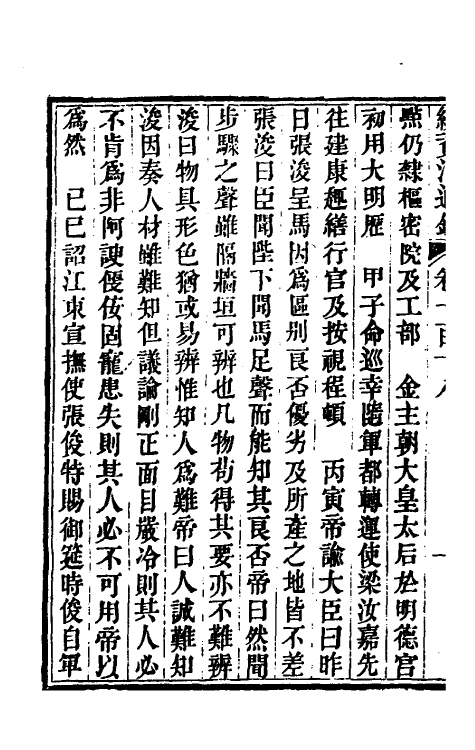 續資治通鑑 卷一百十八 一
點仍隸樞密院及工部　金主朝大皇太后於明德宮
初用大明歷　甲子命巡幸隨軍都轉運使梁汝嘉先
往建康趣繕行宮及按視程頓　丙寅帝諭大臣曰昨
日張浚呈馬因爲區别良否優劣及所產之地皆不差
張浚曰臣聞陛下聞馬足聲而能知其良否帝曰然聞
步驟之聲雖隔牆垣可辨也凡物苟得其要亦不難辨
浚曰物具形色猶或易辨惟知人爲難帝曰人誠難知
浚因奏人材雖難知但議論剛正面目嚴冷則其人必
不肯爲非阿諛便佞固寵患失則其人必不可用帝以
爲然　己巳詔江東宣撫使張俊特賜御筵時俊自軍